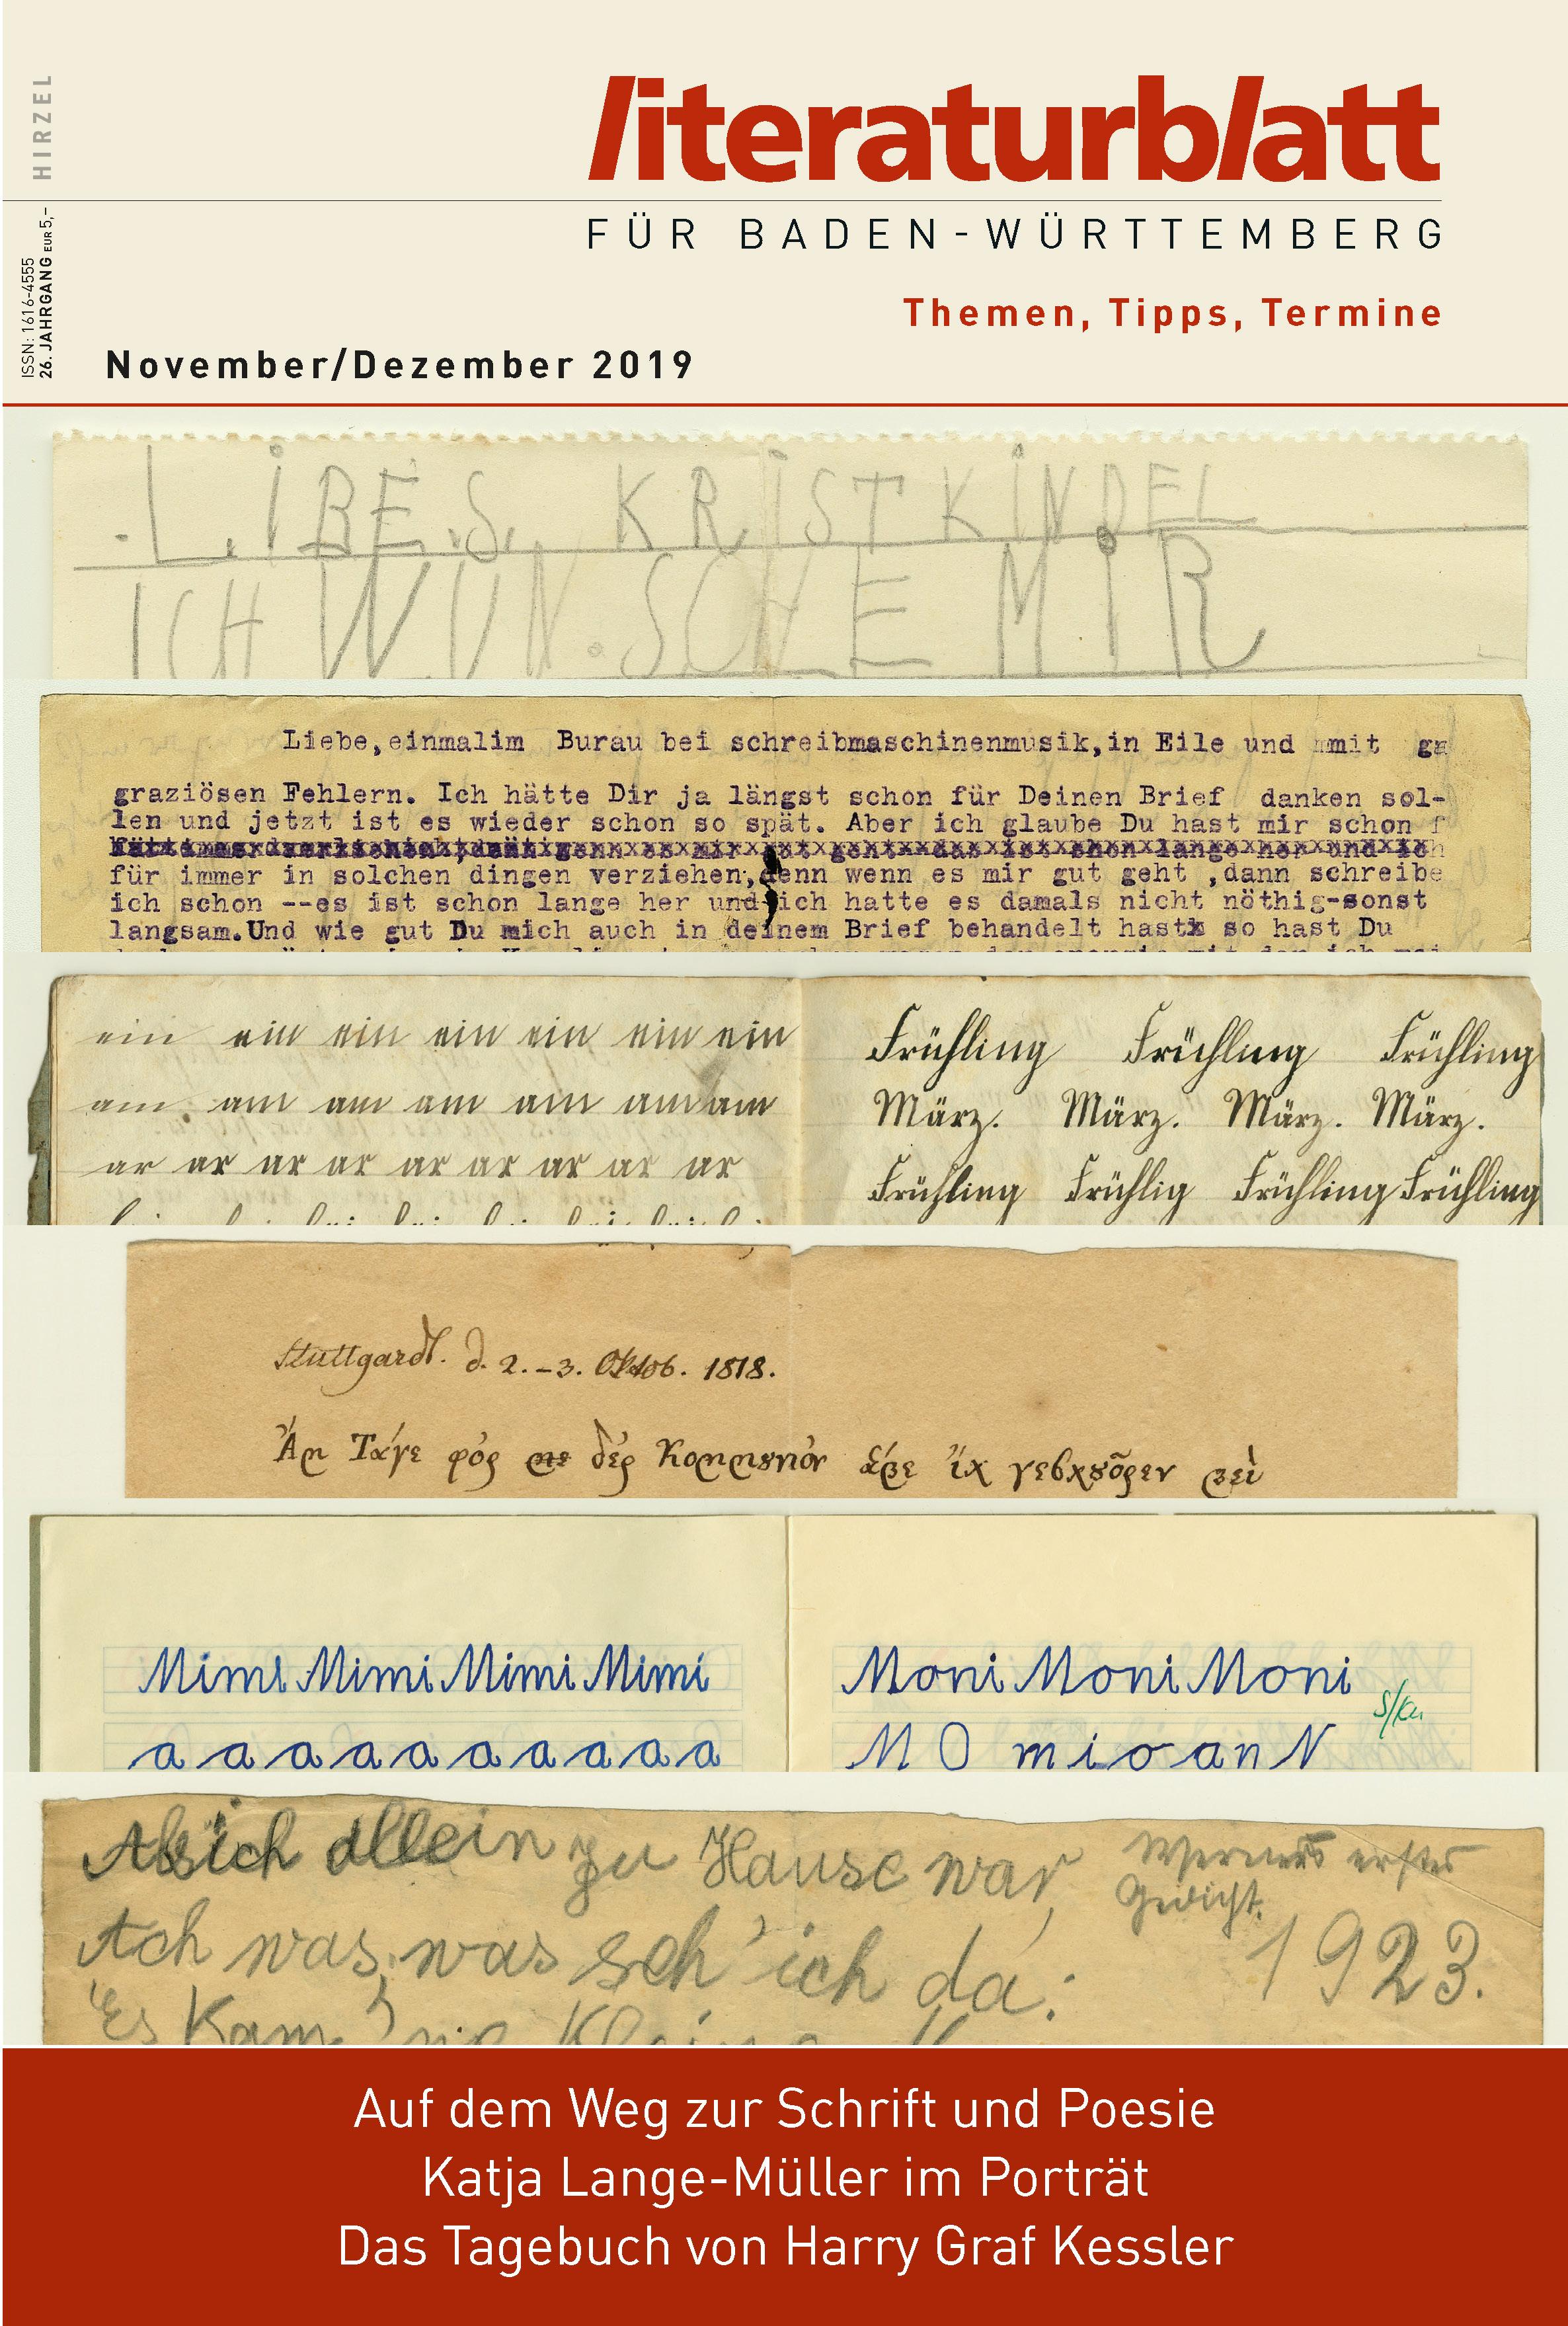 HIRZEL
ISSN: 1616-4555
26. JAHRGANG EUR 5,–
literaturblatt
FÜR BADEN-WÜRTTEMBERG
Themen, Tipps, Termine
November/Dezember 2019
.L.IBE.S. KRISTKINDEL
ICH WUN.SCHE MIR
Liebe,einmalim Burau bei schreibmaschinenmusik,in Eile und mmit ga
graziösen Fehlern. Ich hätte Dir ja längst schon für Deinen Brief danken sol-
len und jetzt ist es wieder schon so spät. Aber ich glaube Du hast mir schon f
für immer in solchen dingen verziehen,denn wenn es mir gut geht ,dann schreibe
ich schon --es ist schon lange her und ich hatte es damals nicht nöthig-sonst
langsam.Und wie gut Du mich auch in deinem Brief behandelt hastx so hast Du
ein ein ein ein ein ein ein
am. am am am am am am
ar ar ar ar ar ar ar ar ar
Frühling Frühling Frühling
März. März. März. März.
Frühling Frühlig Frühling Frühling
Stuttgardt. d. 2.–3. Oktob. 1818.
Τάγε φὸρ δὲρ ἴχ
Mimi Mimi Mimi Mimi
a a a a a a a a a
Moni Moni Moni
M O m i o a n N
Als ich allein zu Hause war,
Werners erstes
Gedicht.
Ach was, was seh' ich da:
1923.
Es kam
Auf dem Weg zur Schrift und Poesie
Katja Lange-Müller im Porträt
Das Tagebuch von Harry Graf Kessler